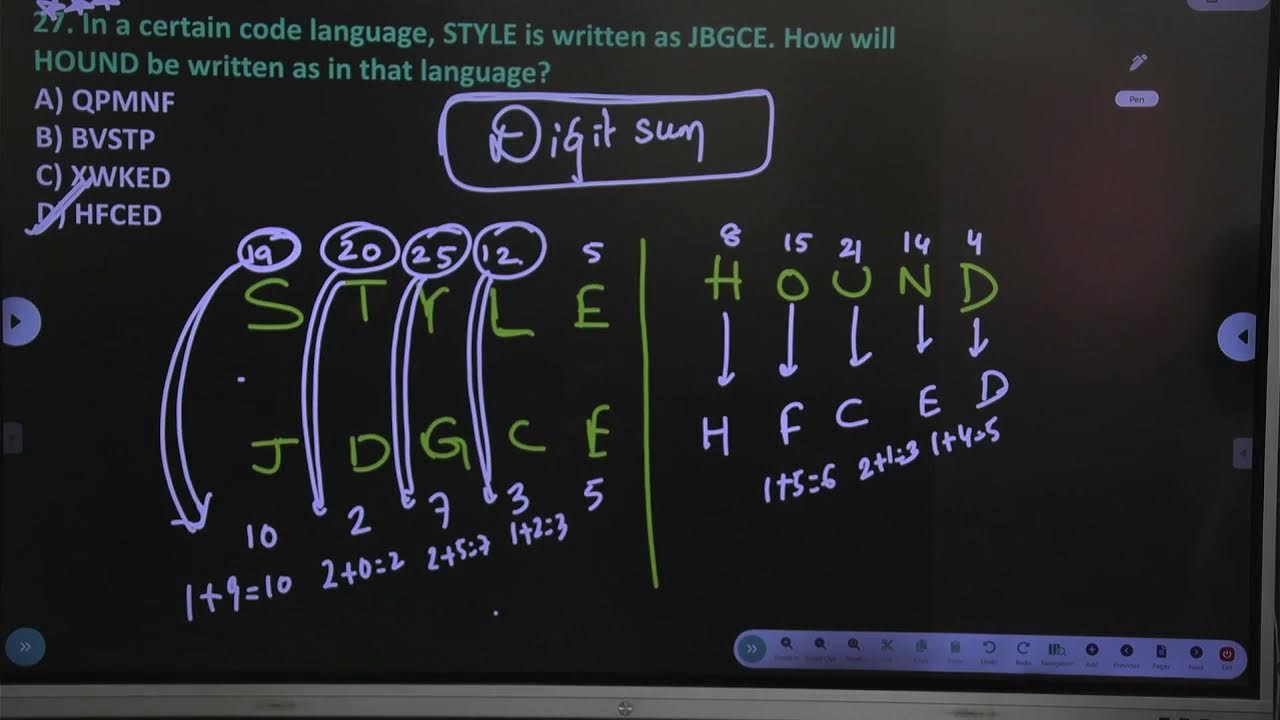 27. In a certain code language, STYLE is written as JBGCE. How will
HOUND be written as in that language?
A) QPMNF
B) BVSTP
C) XWKED
D) HFCED
Digit sum
19 20 25 12 5
S T Y L E
J D G C E
10 2 7 3 5
1+9=10 2+0=2 2+5=7 1+2=3
8 15 21 14 4
H O U N D
H F C E D
1+5=6 2+1=3 1+4=5
Pen
Undo
Redo
Navigation
Add
Previous
Pages
Next
Exit